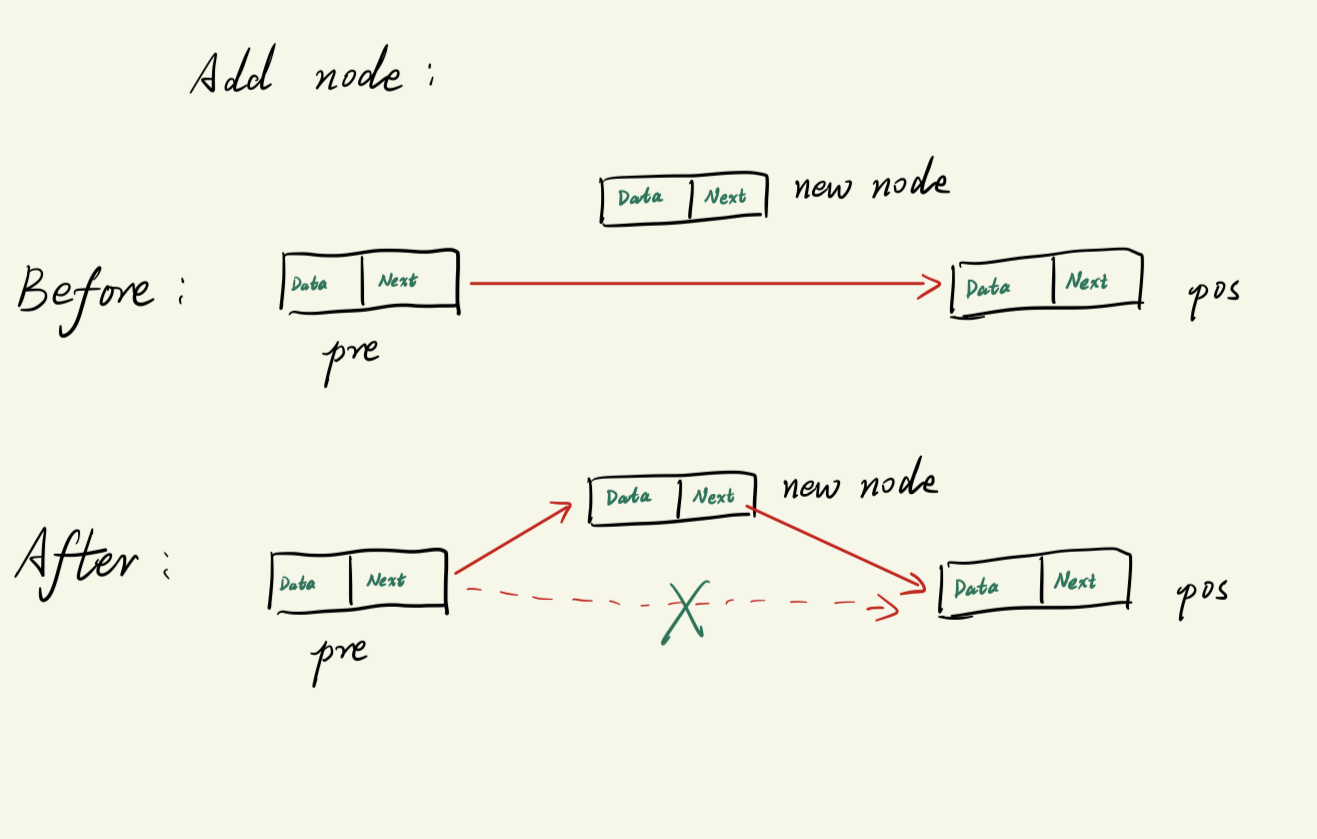 Add node:
Data Next new node
Before: Data Next Data Next pos
pre
Data Next new node
After: Data Next Data Next pos
pre